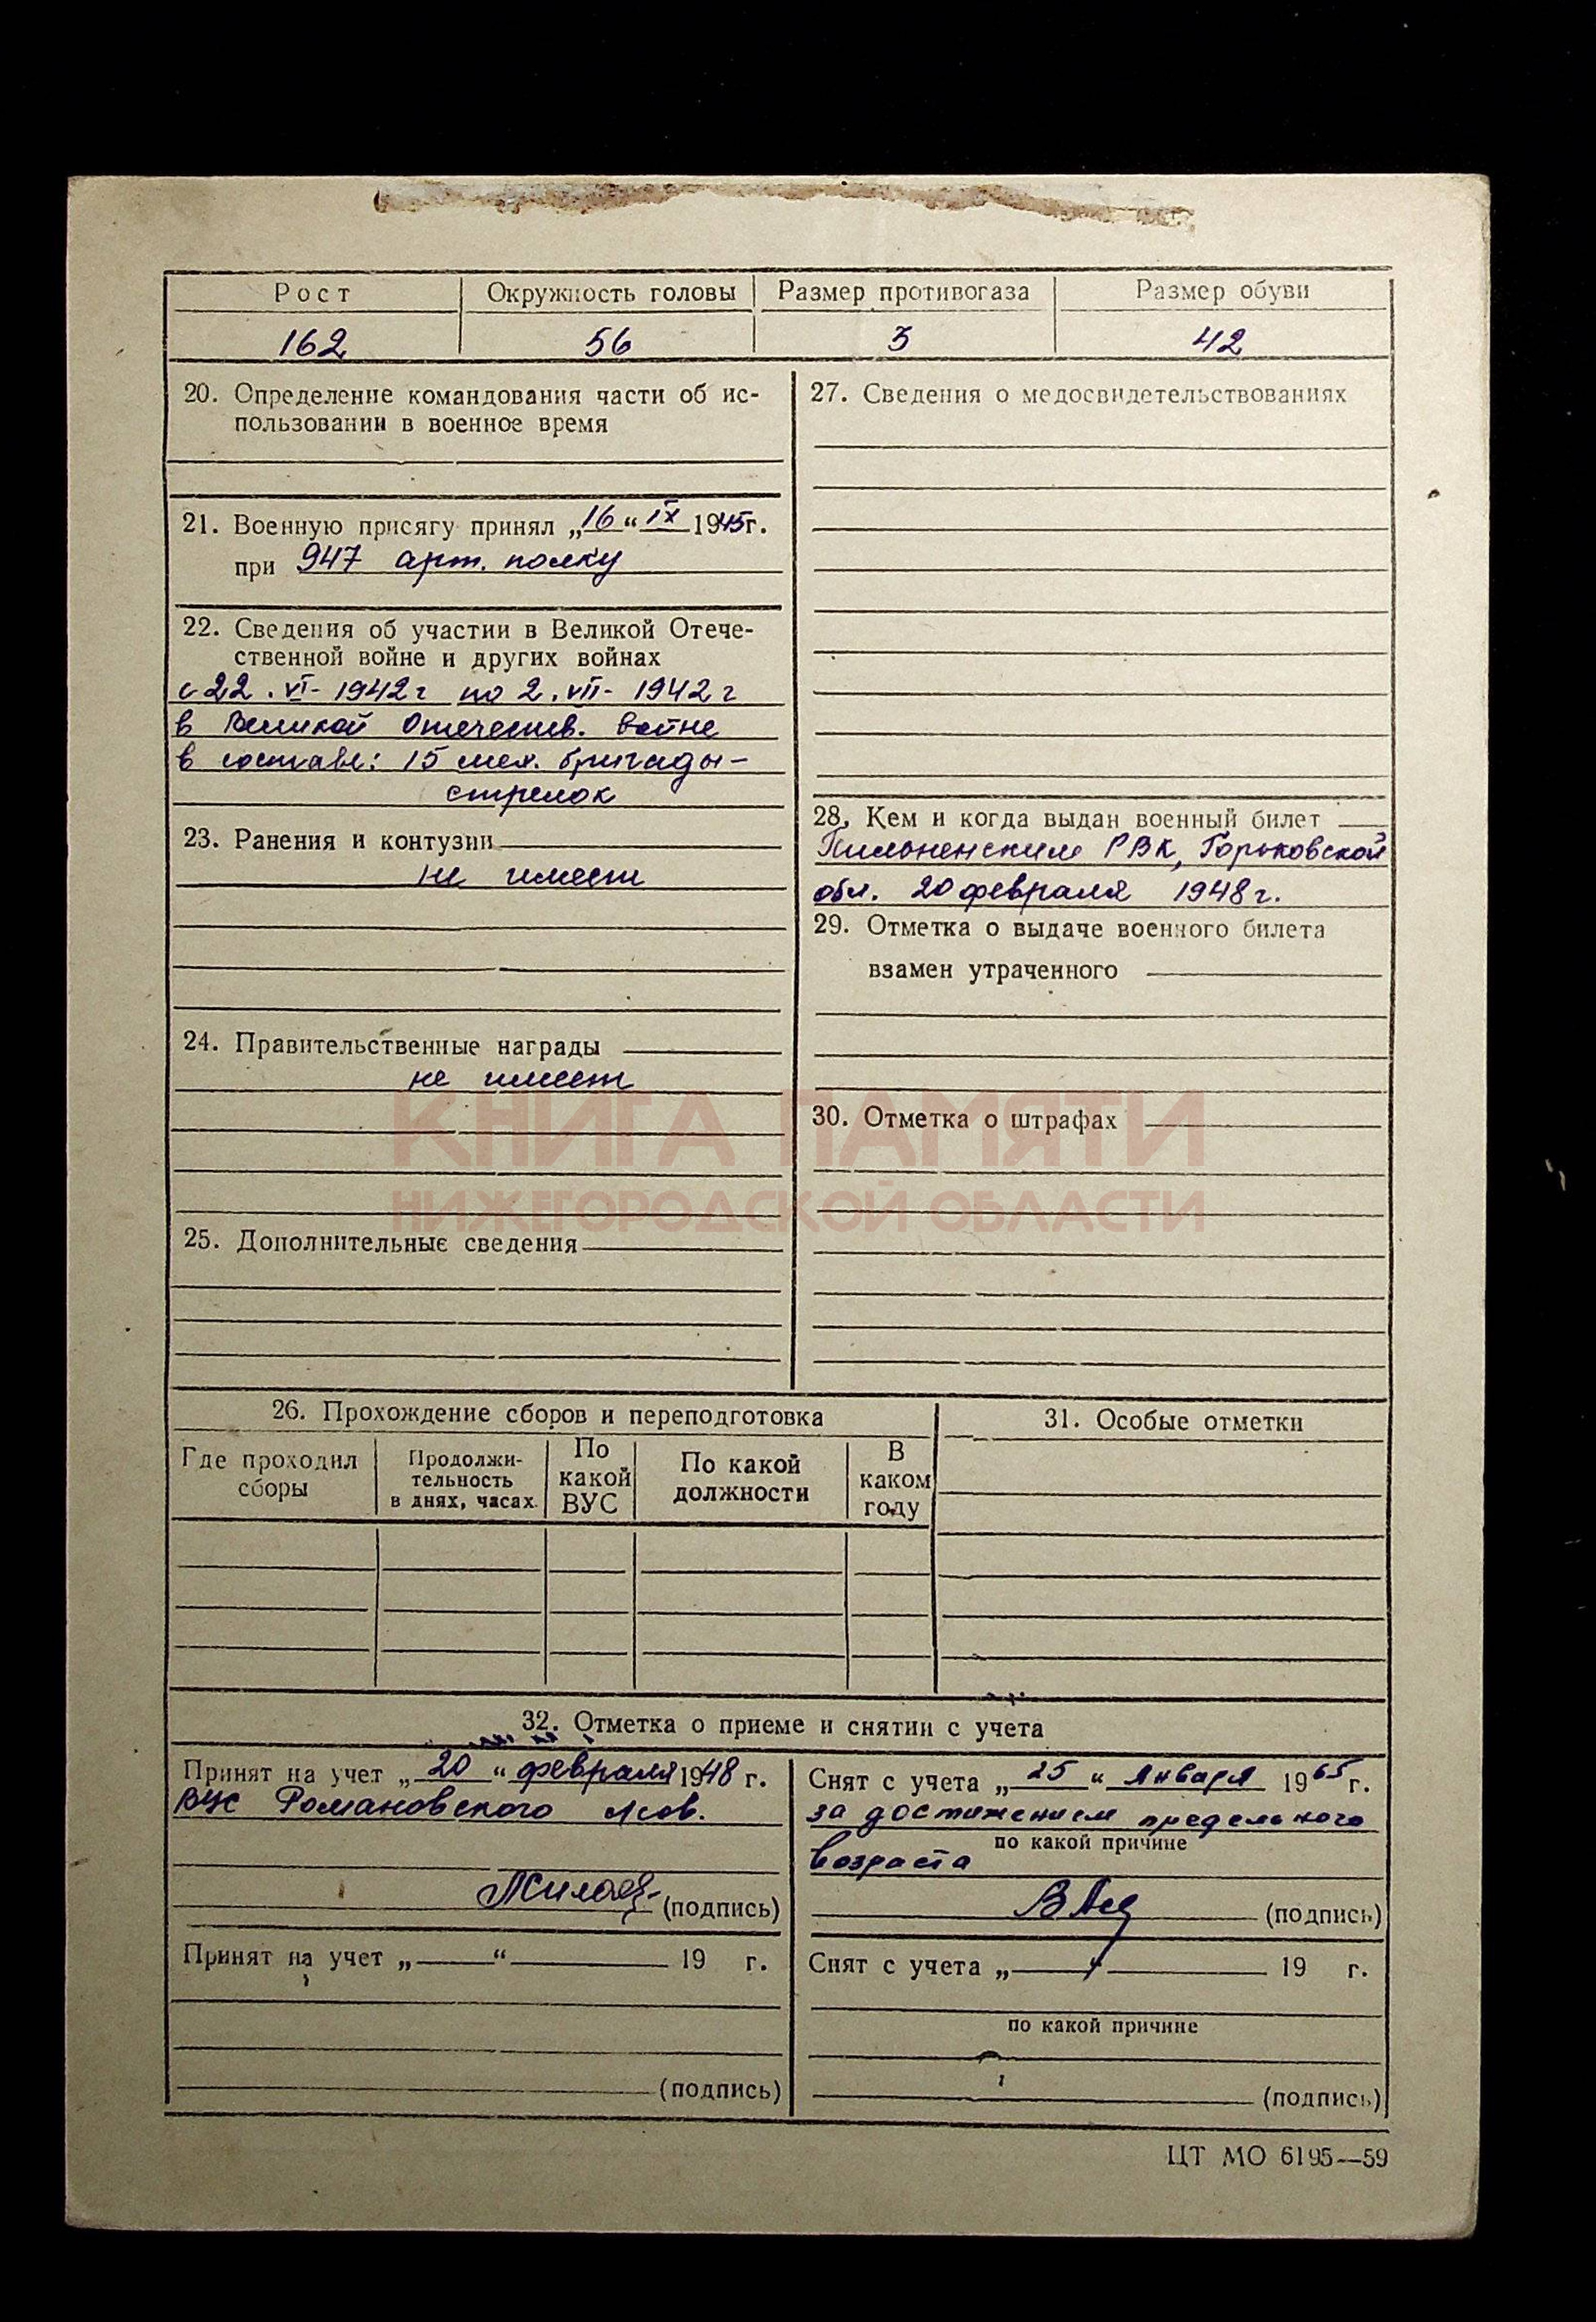 Рост
Окружность головы
Размер противогаза
Размер обуви
162
56
3
42
20. Определение командования части об ис-
пользовании в военное время
21. Военную присягу принял „16“ IX 1945г.
при 947 арт. полку
22. Сведения об участии в Великой Отече-
ственной войне и других войнах
с 22.VI-1942г по 2.VII-1942г
в Великой Отечеств. войне
в составе: 15 мех. бригады-
стрелок
23. Ранения и контузии
не имеет
24. Правительственные награды
не имеет
25. Дополнительные сведения
27. Сведения о медосвидетельствованиях
28. Кем и когда выдан военный билет
РВК, Горьковской
обл. 20 февраля 1948г.
29. Отметка о выдаче военного билета
взамен утраченного
30. Отметка о штрафах
КНИГА ПАМЯТИ
НИЖЕГОРОДСКОЙ ОБЛАСТИ
26. Прохождение сборов и переподготовка
Где проходил
сборы
Продолжи-
тельность
в днях, часах.
По
какой
ВУС
По какой
должности
В
каком
году
31. Особые отметки
32. Отметка о приеме и снятии с учета
Принят на учет „20“ февраля 1948 г.
ВУС Романовского
(подпись)
Принят на учет „ “ 19 г.
(подпись)
Снят с учета „25“ января 1965г.
за достижением предельного
по какой причине
возраста
(подпись)
Снят с учета „ “ 19 г.
по какой причине
(подпись)
ЦТ МО 6195—59